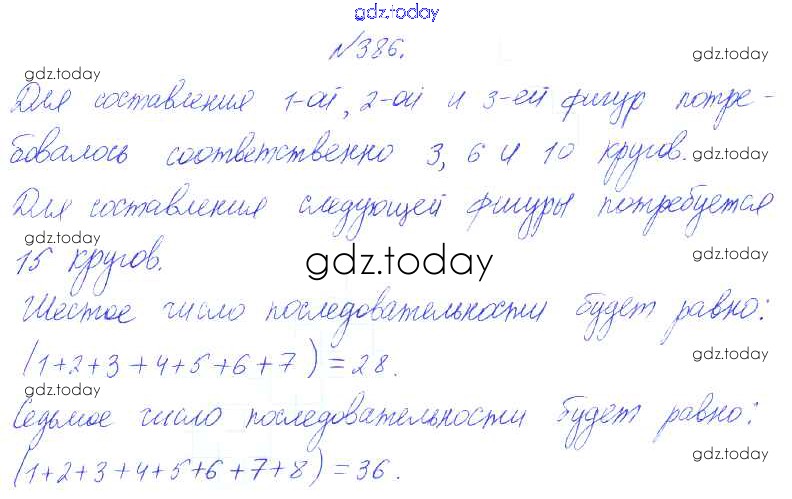 gdz.today
№386.
gdz.today
gdz.today
Для составления 1-ой, 2-ой и 3-ей фигур потре-
gdz.today
бовалось соответственно 3, 6 и 10 кругов.
gdz.today
Для составления следующей фигуры потребуется
gdz.today
15 кругов.
gdz.today
gdz.today
Шестое число последовательности будет равно:
gdz.today
(1+2+3+4+5+6+7)=28.
gdz.today
gdz.today
Седьмое число последовательности будет равно:
gdz.today
(1+2+3+4+5+6+7+8)=36.
gdz.today